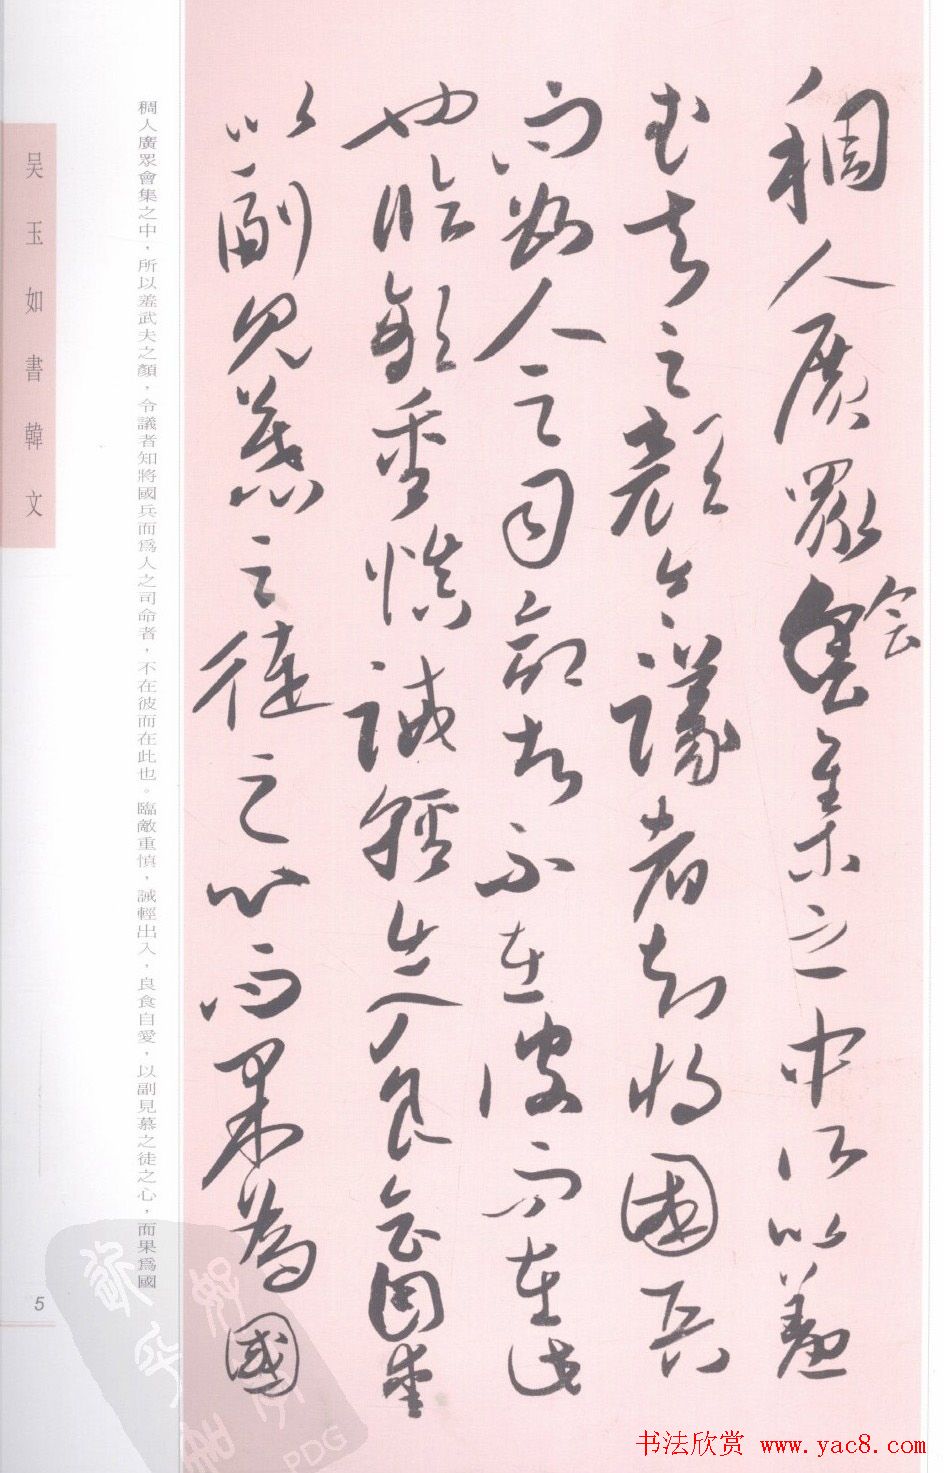 稠人廣眾會会集之中所以羞
武夫之顏令議者知將國兵
而為人之司命者不在彼而在此
也臨敵重慎誡輕出入良食自愛
以副見慕之徒之心而果為國
稠人廣眾會集之中，所以羞武夫之顏，令議者知將國兵而為人之司命者，不在彼而在此也。臨敵重慎，誡輕出入，良食自愛，以副見慕之徒之心，而果為國
吴玉如書韓文
5
PDG
书法欣赏 www.yac8.com